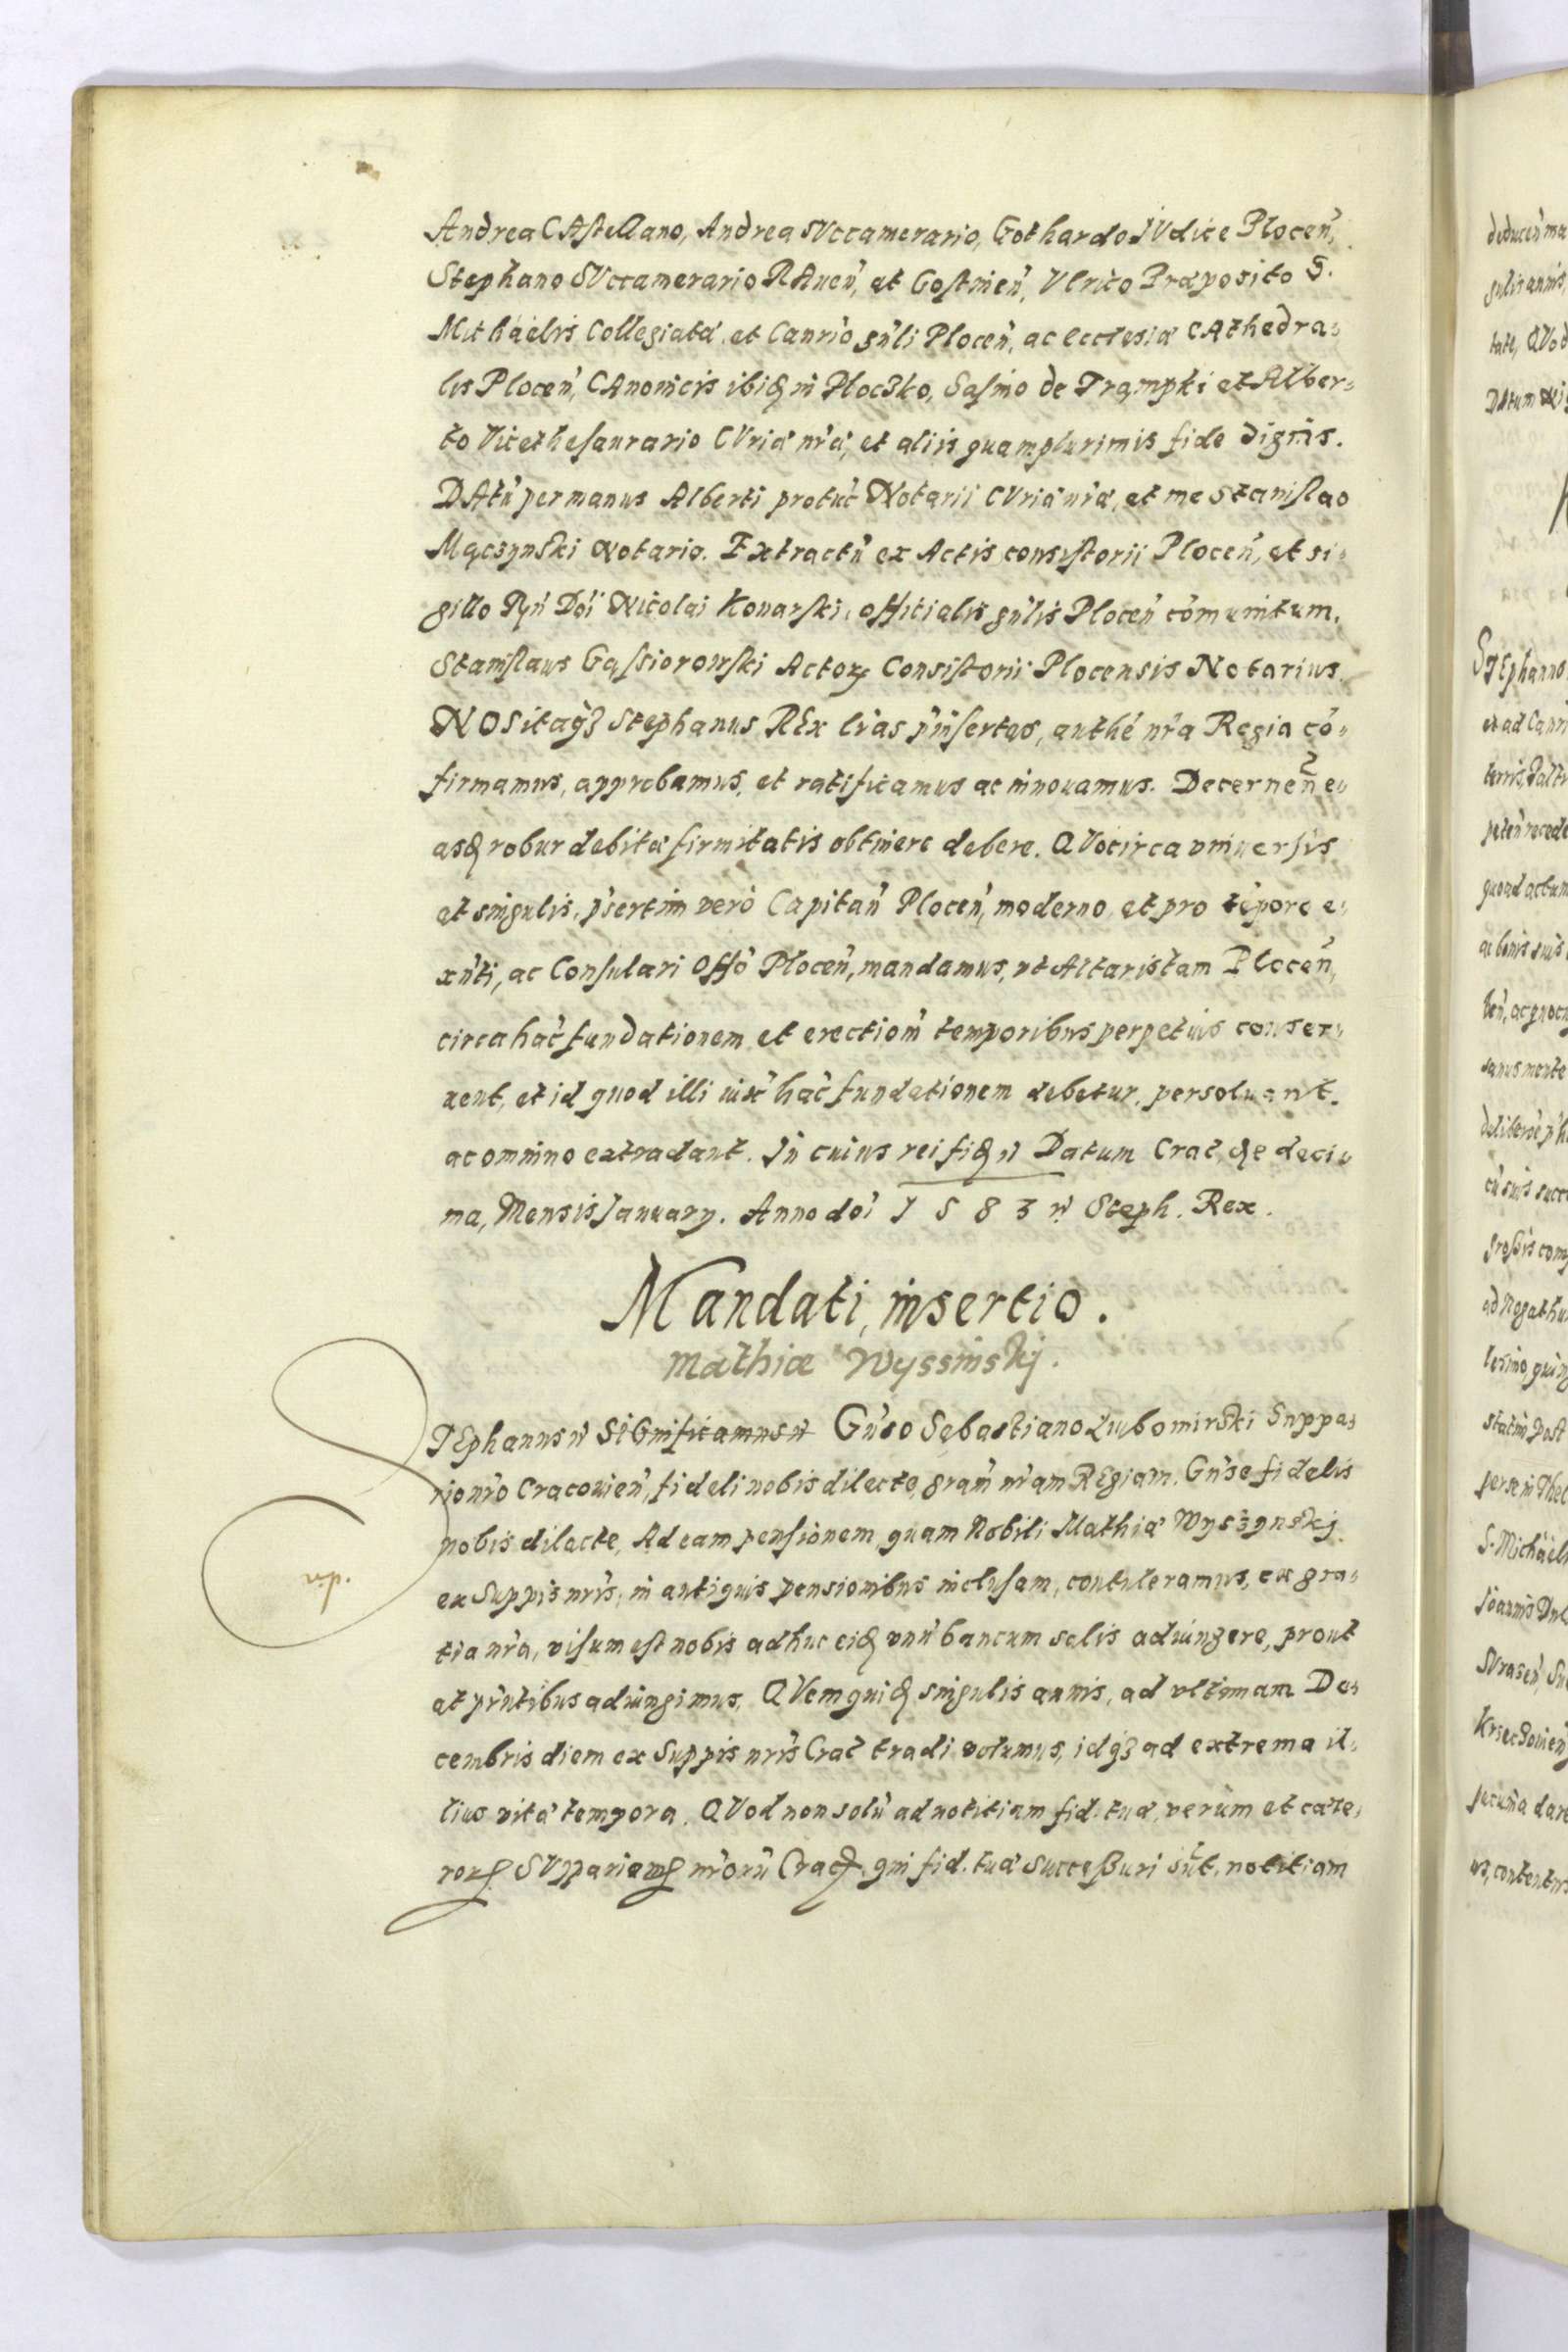 Andrea CAstellano, Andrea SVccamerario, Gothardo JVdice Plocen̄,
Stephano SVccamerario RAuen̄, et Gostinen̄, Vlrico Præposito S.
Michäelis Collegiatæ, et Canrīo gn̄li Plocen̄, ac ecclesiæ CAthedra⸗
lis Plocen̄, CAnonicis ibiq in Ploczko, Sasino de Trąmpki et Alber⸗
to Vicethesaurario CVriæ nr̄æ, et aliis quamplurimis fide dignis.
DAtū per manus Alberti protūc Notarii CVriæ nr̄æ, et me Stanislao
Mączynski Notario. Extractū ex Actis consistorii Plocen̄, et si⸗
gillo Rn̄ Dōi Nicolai Konarski, officialis gn̄lis Plocen̄ cōmunitum.
Stanislaus Gąssiorowski Actoꝝ Consistorii Plocensis Notarius.
NOS itaqꝫ Stephanus REx lr̄as p̄insertas, authē nr̄a Regia cō⸗
firmamus, approbamus, et ratificamus ac innouamus. Decernen̄ e⸗
asq robur debitæ firmitatis obtinere debere. QVocirca vniuersis
et singulis, p̄sertim verò Capitan̄ Plocen̄, moderno, et pro tēpore e⸗
xn̄ti, ac Consulari Offō Plocen̄, mandamus, vt Altaristam Plocen̄,
circa hāc fundationem et erectiom̄ temporibus perpetuis conser⸗
uent, et id quod illi iux̄ hāc fundationem debetur, persoluant.
ac omnino extradant. In cuius rei fiq n̄ Datum Crac, de deci⸗
ma, Mensis January. Anno doī 1583 n̄ Steph. Rex.
Mandati, insertio.
Mathiæ Wyssinskj.
STEphanus n̄ SiGnificamus n̄ Gn̄so Sebastiano Lubomirski Suppa⸗
rionr̄o Cracouien̄, fideli nobis dilecto, gram̄ nr̄am REgiam. Gn̄se fidelis
nobis dilecte, Ad eam pensionem, quam Nobili Mathiæ Wyszynskj
ex Suppis nr̄is, in antiquis pensionibus inclusam, contuleramus, ex gra⸗
tia nr̄a, visum est nobis adhuc eiq vnū bancum salis adiungere, prout
et pn̄tibus adiungimus, QVem quiq singulis annis, ad vltimam De⸗
cembris diem ex Suppis nr̄is Crac̄ tradi volumus, idqꝫ ad extrema il⸗
lius vitæ tempora. QVod non solū ad notitiam fid. tuæ, verùm et cæte⸗
roꝝ SVppariorꝝ nr̄orū Crac, qui fid. tuæ successuri sūt, notitiam